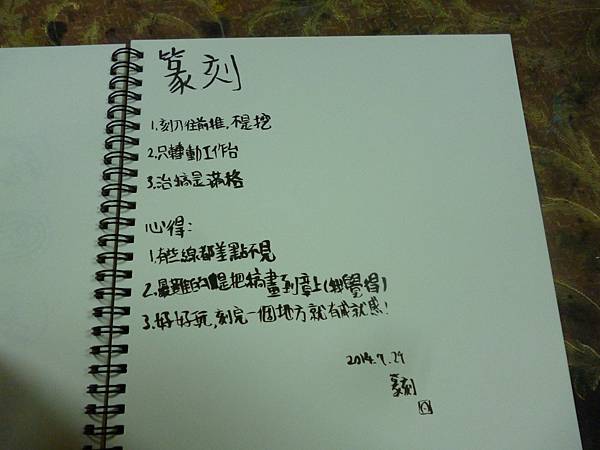 篆刻
1.刻刀往前推,不是挖
2.只轉動工作台
3.治稿是滿格
心得:
1.有些線都差點不見
2.最難的是把稿畫到章上(我覺得)
3.好好玩,刻完一個地方就有成就感!
2014.7.29
篆刻